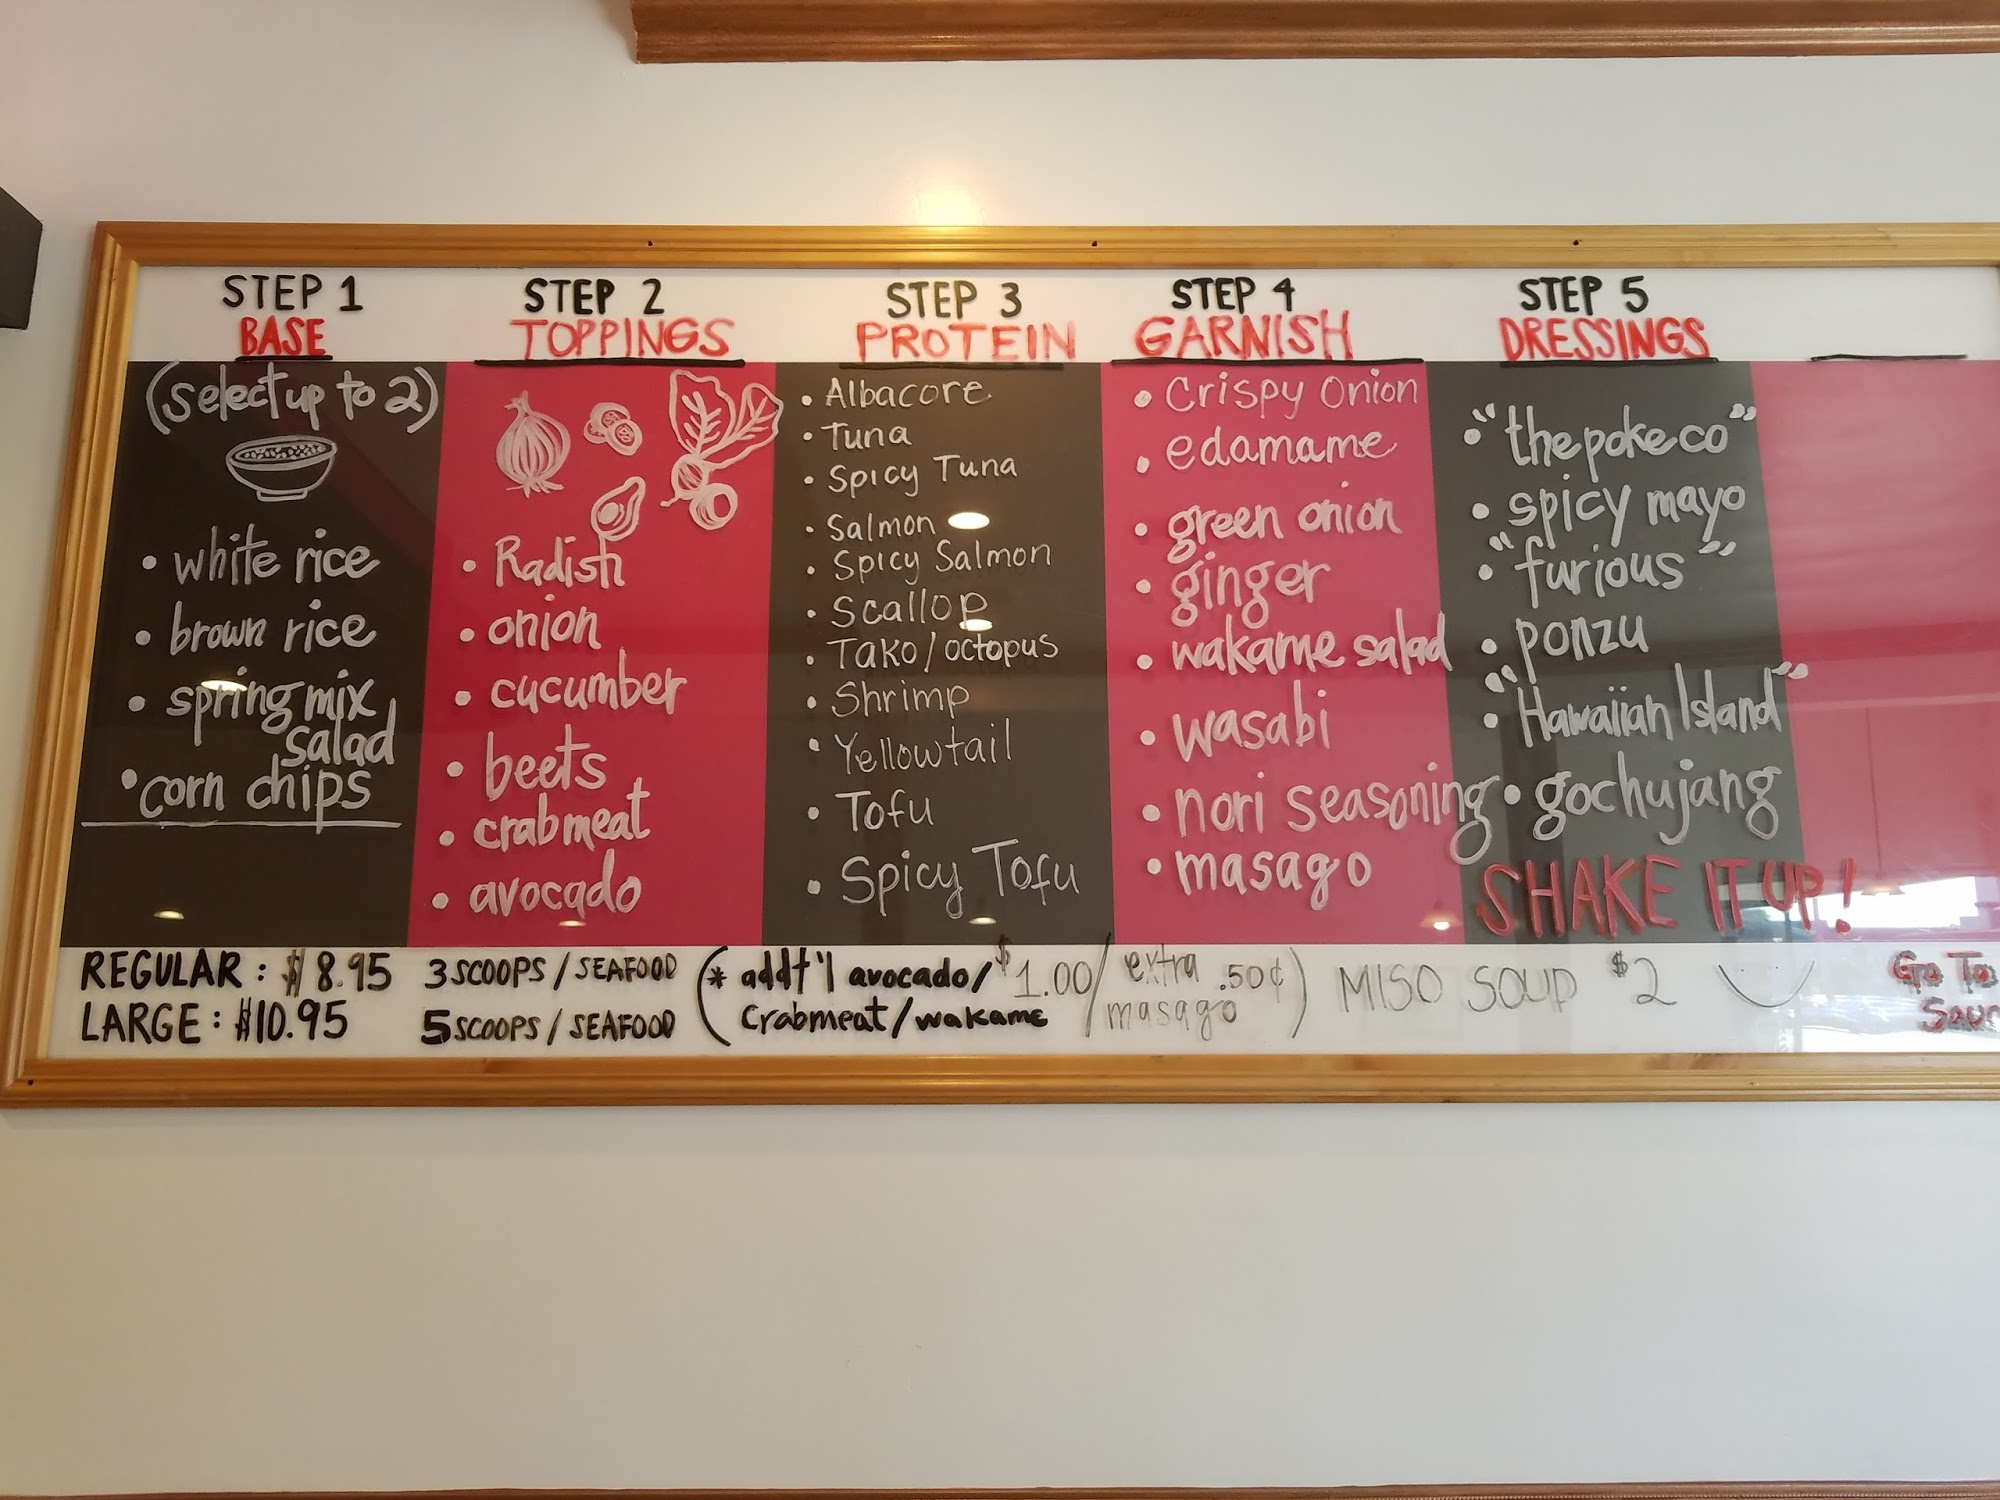 STEP 1
BASE
(select up to 2)
• white rice
• brown rice
• spring mix
salad
• corn chips
STEP 2
TOPPINGS
• Radish
• onion
• cucumber
• beets
• crabmeat
• avocado
STEP 3
PROTEIN
• Albacore
• Tuna
• Spicy Tuna
• Salmon
• Spicy Salmon
• Scallop
• Tako/octopus
• Shrimp
• Yellowtail
• Tofu
• Spicy Tofu
STEP 4
GARNISH
• Crispy Onion
• edamame
• green onion
• ginger
• wakame salad
• wasabi
• nori seasoning
• masago
STEP 5
DRESSINGS
• "the poke co"
• spicy mayo
• "furious"
• ponzu
• "Hawaiian Island"
• gochujang
SHAKE IT UP!
REGULAR: $8.95 3 SCOOPS / SEAFOOD
LARGE: $10.95 5 SCOOPS / SEAFOOD
(* addt'l avocado/ $1.00/ extra .50¢)
Crabmeat/wakame masago
MISO SOUP $2
Go To